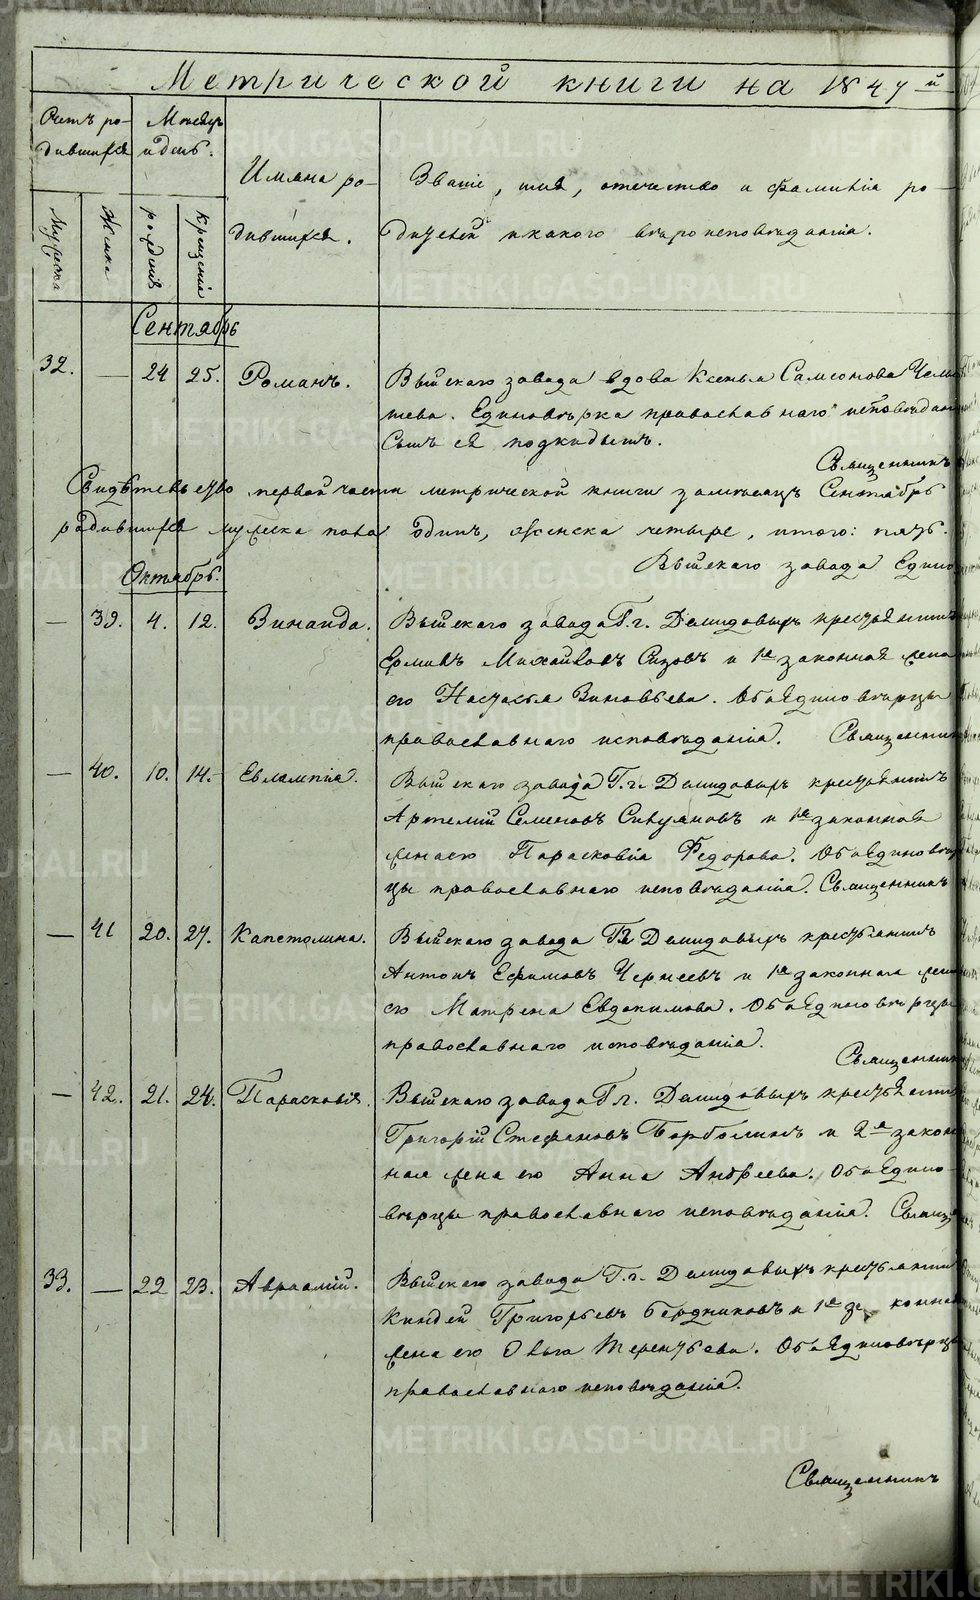 Метрической книги на 1847й
Счетъ ро-
дившихся
Мѣсяцъ
и день.
Имяна ро-
дившихся.
Званіе, имя, отечество и фамилія ро-
дителей и какого вѣроисповѣданія.
Мужеска
Женска
рожденія
крещенія
Сентябрь
32. — 24 25. Романъ. Выйскаго завода вдова Ксенья Самсонова
Единовѣрка православнаго исповѣдан
Сынъ ея подкидышъ.
Священникъ
Свидѣтельство первой части метрической книги за мѣсяцъ Сентябрь
родившихся мужеска пола одинъ, женска четыре, итого: пять.
Выйскаго завода Едино
Октябрь.
— 39. 4. 12. Зинаида. Выйскаго завода Г.г. Демидовыхъ крестьянинъ
Ермилъ Михайловъ Сизовъ и 1я законная жена
его Настасья Зиновьева. Оба Единовѣрцы
православнаго исповѣданія. Священник
— 40. 10. 14. Евлампія. Выйскаго завода Г.г. Демидовыхъ крестьянинъ
Артемій Семеновъ и 1я законная
жена его Парасковія Федорова. Оба Единовѣр
цы православнаго исповѣданія. Священникъ
— 41 20. 27. Капетолина. Выйскаго завода Гг Демидовыхъ крестьянинъ
Антонъ Ефимовъ Чернеевъ и 1я законная жена
его Матрена Евдокимова. Оба Единовѣрцы
православнаго исповѣданія.
Священник
— 42. 21. 24. Парасковія. Выйскаго завода Г.г. Демидовыхъ крестьянин
Григорій Стефановъ и 2я закон
ная жена его Анна Андреева. Оба Едино-
вѣрцы православнаго исповѣданія. Священ
33. — 22 23. Авраамій. Выйскаго завода Г.г. Демидовыхъ крестьянин
Киндей Григорьевъ Бердниковъ и 1я законна
жена его Ольга Терентьева. Оба Единовѣрц
православнаго исповѣданія.
Священникъ
METRIKI.GASO-URAL.RU